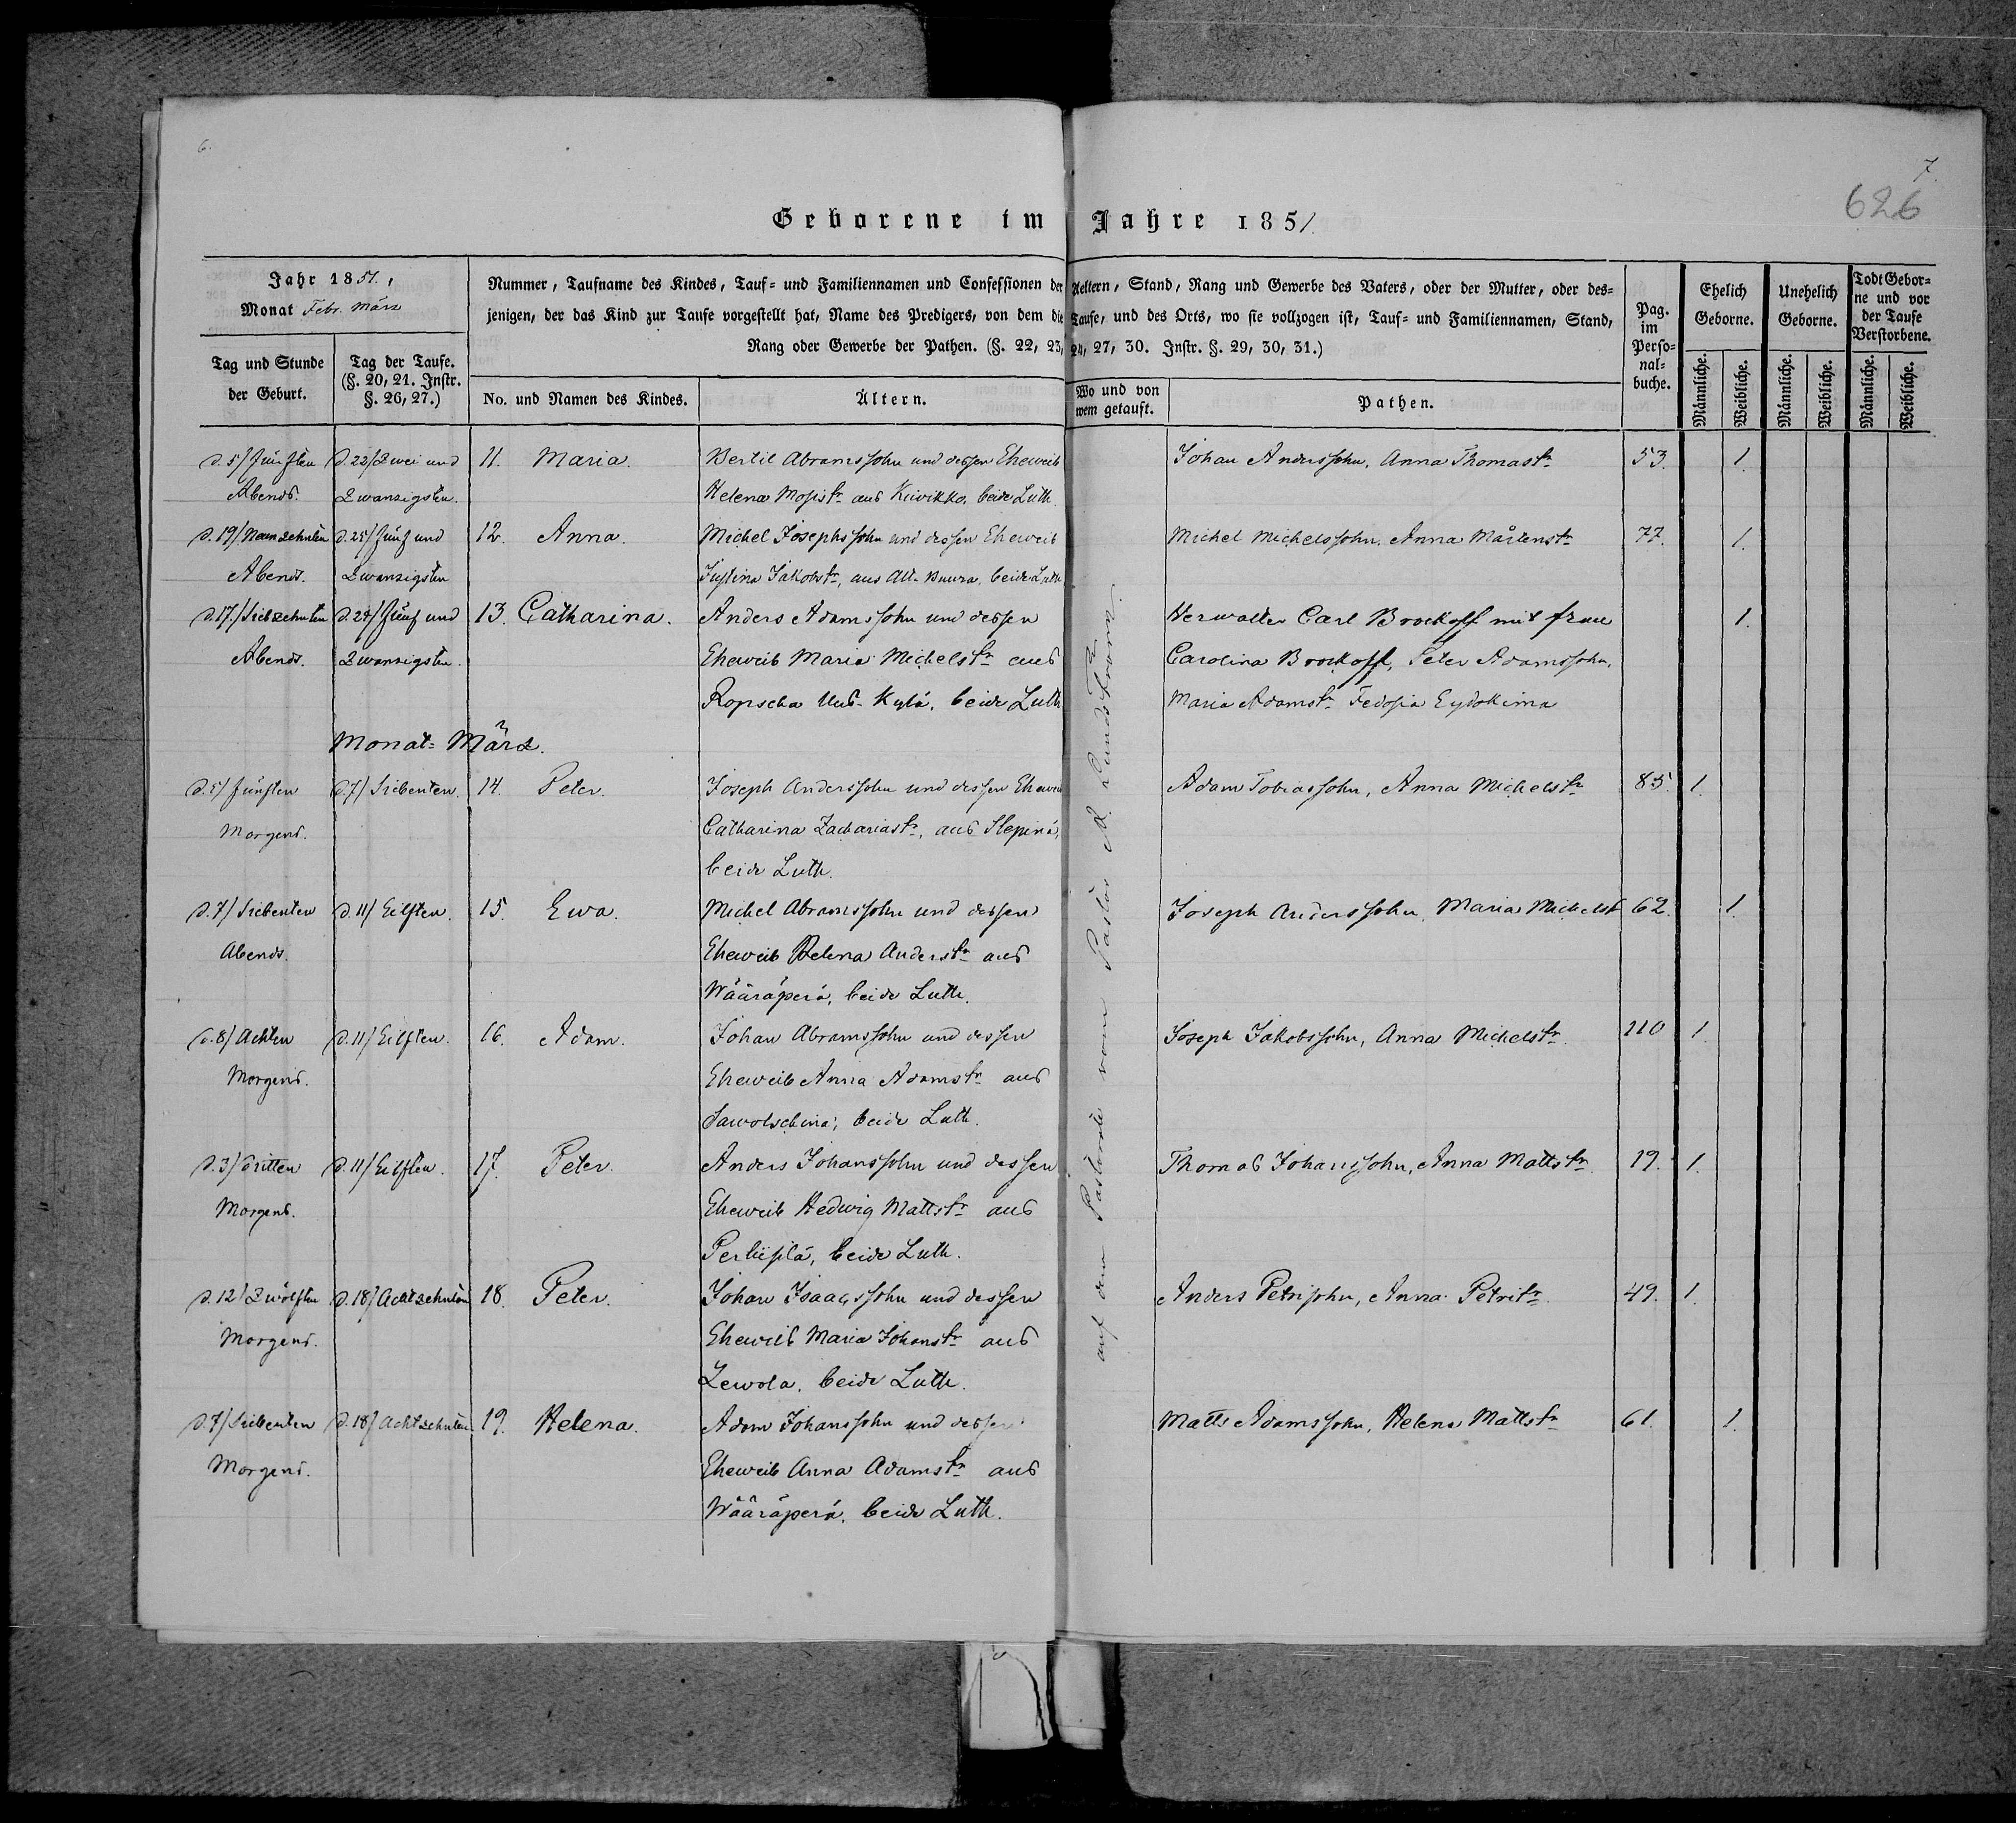 6.
7.
626
Geborene im Jahre 1851.
Jahr 1851.,
Monat Febr. März
Tag und Stunde der Geburt.
Tag der Taufe. (§. 20, 21. Instr. §. 26, 27.)
Nummer, Taufname des Kindes, Tauf- und Familiennamen und Confessionen der Aeltern, Stand, Rang und Gewerbe des Vaters, oder der Mutter, oder des-
jenigen, der das Kind zur Taufe vorgestellt hat, Name des Predigers, von dem die Taufe, und des Orts, wo sie vollzogen ist, Tauf- und Familiennamen, Stand,
Rang oder Gewerbe der Pathen. (§. 22, 23, 24, 27, 30. Instr. §. 29, 30, 31.)
No. und Namen des Kindes.
Ältern.
Wo und von wem getauft.
Pathen.
Pag. im Perso-nal-buche.
Ehelich Geborne.
Unehelich Geborne.
Todt Gebor-ne und vor der Taufe Verstorbene.
Männliche. Weibliche. Männliche. Weibliche. Männliche. Weibliche.
d. 5/ Fünften d. 22/ Zwei und 11. Maria. Bertil Abramssohn und dessen Eheweib Johan Anderssohn, Anna Thomastr 53. 1.
Abends. Zwanzigsten. Helena Mosistr aus Kiwikko, beide Luth.
d. 19/ Neunzehnten d. 25/ Fünf und 12. Anna. Michel Josephssohn und dessen Eheweib Michel Michelssohn. Anna Mårtenstr 77. 1.
Abends. Zwanzigsten Justina Jakobstr, aus Alt-Buura, beide Luth
d. 17./ Siebzehnten d. 25/ Fünf und 13. Catharina. Anders Adamssohn und dessen Verwalter Carl Brockoff mit frau 1.
Abends. Zwanzigsten. Eheweib Maria Michelstr aus Carolina Brockoff, Peter Adamssohn,
Ropscha Uus-Kylä, beide Luth Maria Adamstr Fedosia Eydokima
Monat März.
d. 5/ Fünften d. 7/ Siebenten. 14. Peter. Joseph Anderssohn und dessen Eheweib Adam Tobiassohn, Anna Michelstr 85. 1.
Morgens. Catharina Zachariastr, aus Slepinä,
beide Luth.
d. 7/ Siebenten d. 11/ Eilften. 15. Ewa. Michel Abramssohn und dessen Joseph Anderssohn, Maria Michelst 62. 1.
Abends. Eheweib Helena Anderstr aus
Wääräperä, beide Luth.
d. 8/ Achten d. 11/ Eilften. 16. Adam. Johan Abramssohn und dessen Joseph Jakobssohn, Anna Michelstr 110 1.
Morgens. Eheweib Anna Adamstr aus
Sawolschina, beide Luth.
d. 3/ Dritten d. 11/ Eilften. 17. Peter. Anders Johanssohn und dessen Thomas Johanssohn, Anna Mattstr 19. 1.
Morgens. Eheweib Hedwig Mattstr aus
beide Luth.
d. 12/ Zwölften d. 18/ Achtzehnten 18. Peter. Johan Isaacssohn und dessen Anders Petrisohn, Anna Petritr. 49. 1.
Morgens. Eheweib Maria Johanstr aus
Zewola, beide Luth.
d. 7/ Siebenten d. 18/ Achtzehnten 19. Helena. Adam Johanssohn und dessen Matts Adamssohn, Helena Mattstr 61. 1.
Morgens. Eheweib Anna Adamstr aus
Wääräperä, beide Luth.
auf dem Pastorate vom Pastor A. Lundström.